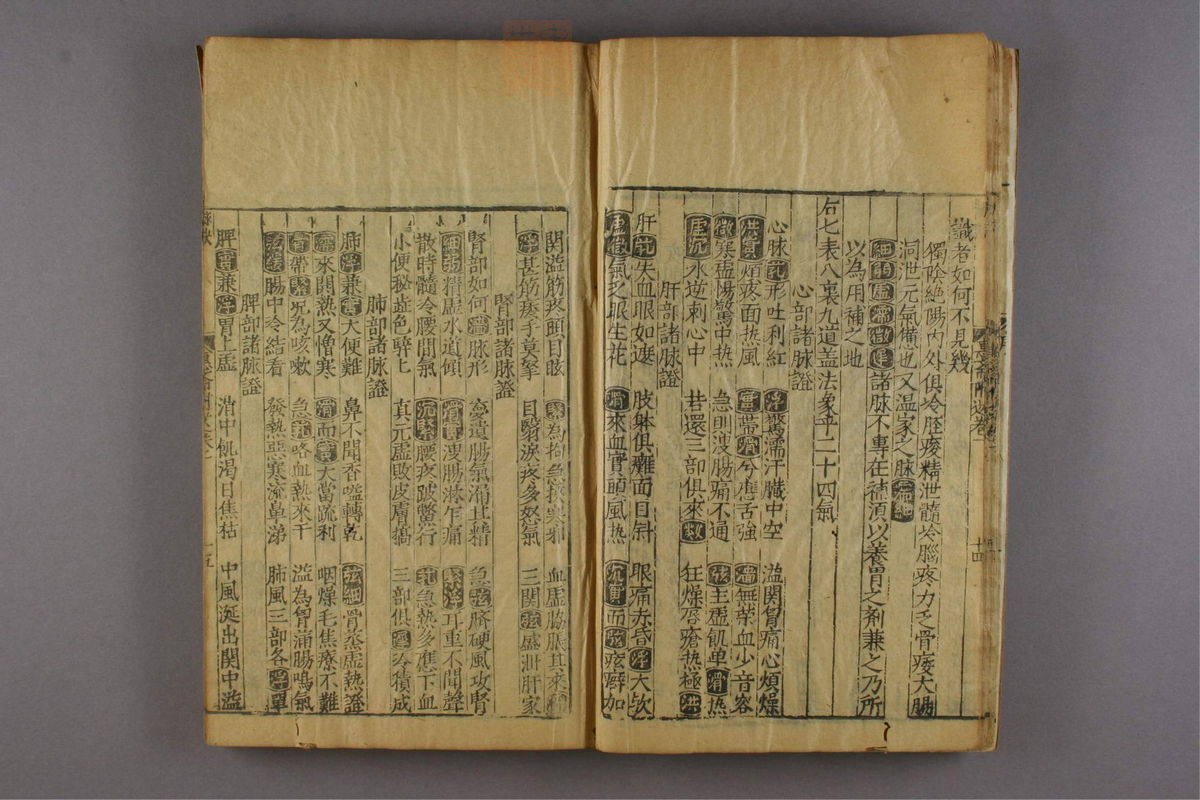 識者如何不見幾
獨陰絕陽內外俱冷脛痠精泄髓冷腦疼力乏骨痿大腸
洞泄元氣備也又温家之脉
細弱虛濡微遲諸脉不專在補須以養胃之剤兼之乃所
以為用補之地
右七表八裏九道盖法象乎二十四氣
心部諸脉證
心脉芤形吐利紅 浮驚濡汗臟中空 溢関胷痛心煩燥
洪實煩疼面热風 實帶滑兮應舌強 濇無荣血少音容
微寒虛惕驚中热 急則溲腸痛不通 弦主虛飢单滑热
沉水逆刺心中 甘還三部俱來數 狂燥唇瘡热極洪
肝部諸脉證
肝芤失血眼如遮 肢躰俱癱面目斜 眼痛赤昏浮大欤
虛微氣乏眼生花 滑來血實頭風热 沉實而弦痃癖加
関溢筋疼頭目眩 緊為拘急挾寒邪 血虛膓脹其來
浮甚筋痿手莫拏 目翳淚疼多怒氣 三関弦盛泄肝家
腎部諸脉證
腎部如何濡脉形 夣遺腸氣涌其精 急弦臍硬風攻腎
細弱精虛水道傾 滑實溲腸淋乍痛 緊浮耳重不聞聲
散時髓冷腰間氣 沉緊腰疼跛鱉行 芤急热多應下血
小便秘澁色騂〻 真元虛敗皮膚槁 三部俱遲冷積成
肺部諸脉證
肺浮兼實大便難 鼻不聞香嗌轉乾 弦細骨蒸虛熱證
濡來関熱又憎寒 滑而實大當疏利 咽燥毛焦療不難
滑帶緊况為咳嗽 急芤咯血熱來干 溢為胷滿腸鳴氣
弦緩腸中冷結看 發熱惡寒流鼻涕 肺風三部各浮單
脾部諸脉證
脾實兼浮胃上虛 消中飢渴日焦枯 中風涎出関中溢